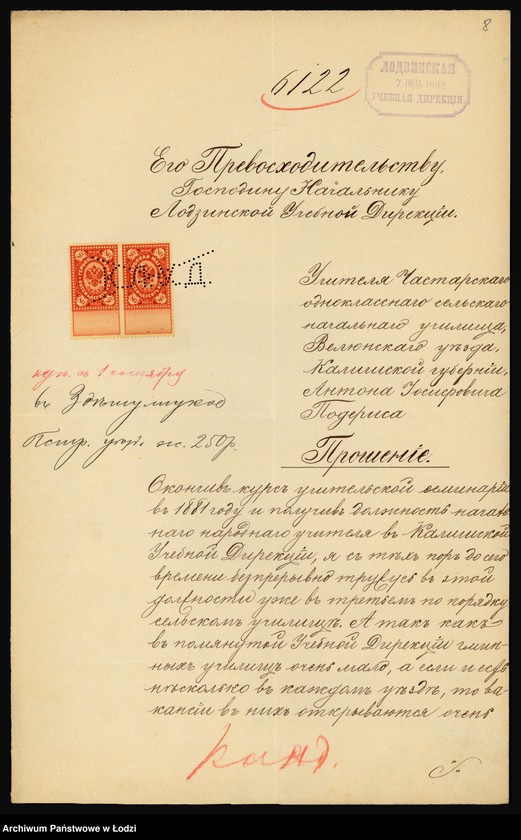 8
6122
ЛОДЗИНСКАЯ
7 1898
УЧЕБНАЯ ДИРЕКЦІЯ
Его Превосходительству,
Господину Начальнику
Лодзинской Учебной Дирекціи.
Учителя Частарскаго
одноклассного сельскаго
начальнаго училища,
Велюнскаго уѣзда,
Калишской губерніи,
Антона Іосифовича
Подериса
съ 1 сентября
въ
250 р.
Прошеніе.
Окончивъ курсъ учительской семинаріи
въ 1881 году и получивъ должность началь
наго народнаго учителя въ Калишской
Учебной Дирекціи, я съ тѣхъ поръ до сего
времени безпрерывно тружусь въ этой
должности уже въ третьемъ по порядку
сельскомъ училищѣ. А такъ какъ
въ помянутой Учебной Дирекціи гмин-
ныхъ училищъ очень мало, а если и есть
нѣсколько въ каждомъ уѣздѣ, то ва-
кансіи въ нихъ открываются очень
канд.
Archiwum Państwowe w Łodzi